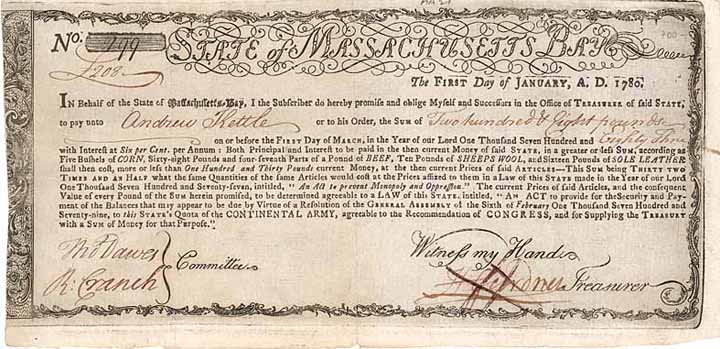 No. 299 STATE of MASSACHUSETTS BAY
£208
The FIRST Day of JANUARY, A. D. 1780.
IN Behalf of the State of Massachusetts-Bay, I the Subscriber do hereby promise and oblige Myself and Successors in the Office of TREASURER of said STATE,
to pay unto Andrew Kettle or to his Order, the SUM of Two hundred & Eight pounds
on or before the FIRST Day of MARCH, in the Year of our Lord One Thousand Seven Hundred and Eighty Four
with Interest at Six per Cent. per Annum: Both Principal and Interest to be paid in the then current Money of said STATE, in a greater or less SUM, according as
Five Bushels of CORN, Sixty-eight Pounds and four-seventh Parts of a Pound of BEEF, Ten Pounds of SHEEPS WOOL, and Sixteen Pounds of SOLE LEATHER
shall then cost, more or less than One Hundred and Thirty Pounds current Money, at the then current Prices of said ARTICLES—This SUM being THIRTY TWO
TIMES AND AN HALF what the same Quantities of the same Articles would cost at the Prices affixed to them in a LAW of this STATE made in the Year of our Lord
One Thousand Seven Hundred and Seventy-seven, intitled, "An Act to prevent Monopoly and Oppression." The current Prices of said Articles, and the consequent
Value of every Pound of the SUM herein promised, to be determined agreeable to a LAW of this STATE, intitled, "AN ACT to provide for the Security and Pay-
ment of the Balances that may appear to be due by Virtue of a Resolution of the GENERAL ASSEMBLY of the Sixth of February One Thousand Seven Hundred and
Seventy-nine, to this STATE'S Quota of the CONTINENTAL ARMY, agreeable to the Recommendation of CONGRESS, and for Supplying the TREASURY
with a SUM of Money for that Purpose."
Witness my Hand
Tho Dawes
R: Cranch
Committee
Treasurer